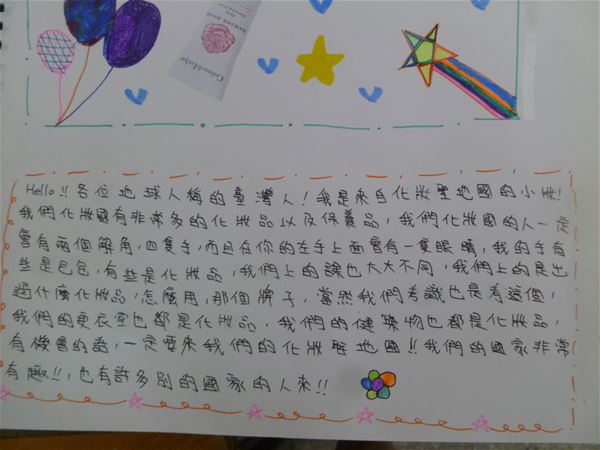 Hello!!各位地球人稱的臺灣人!我是來自化妝聖地國的小妝!
我們化妝國有非常多的化妝品以及保養品,我們化妝國的人一定
會有兩個解角,四隻手,而且在你的左手上面會有一隻眼睛,我的手有
些是包包,有些是化妝品,我們上的課也大大不同,我們上的是出
過什麼化妝品,怎麼用,那個牌子,當然我們考識也是考這個,
我們的更衣室也都是化妝品,我們的健築物也都是化妝品,
有機會的話,一定要來我們的化妝聖地國!!我們的國家非常
有趣!!,也有許多別的國家的人來!!